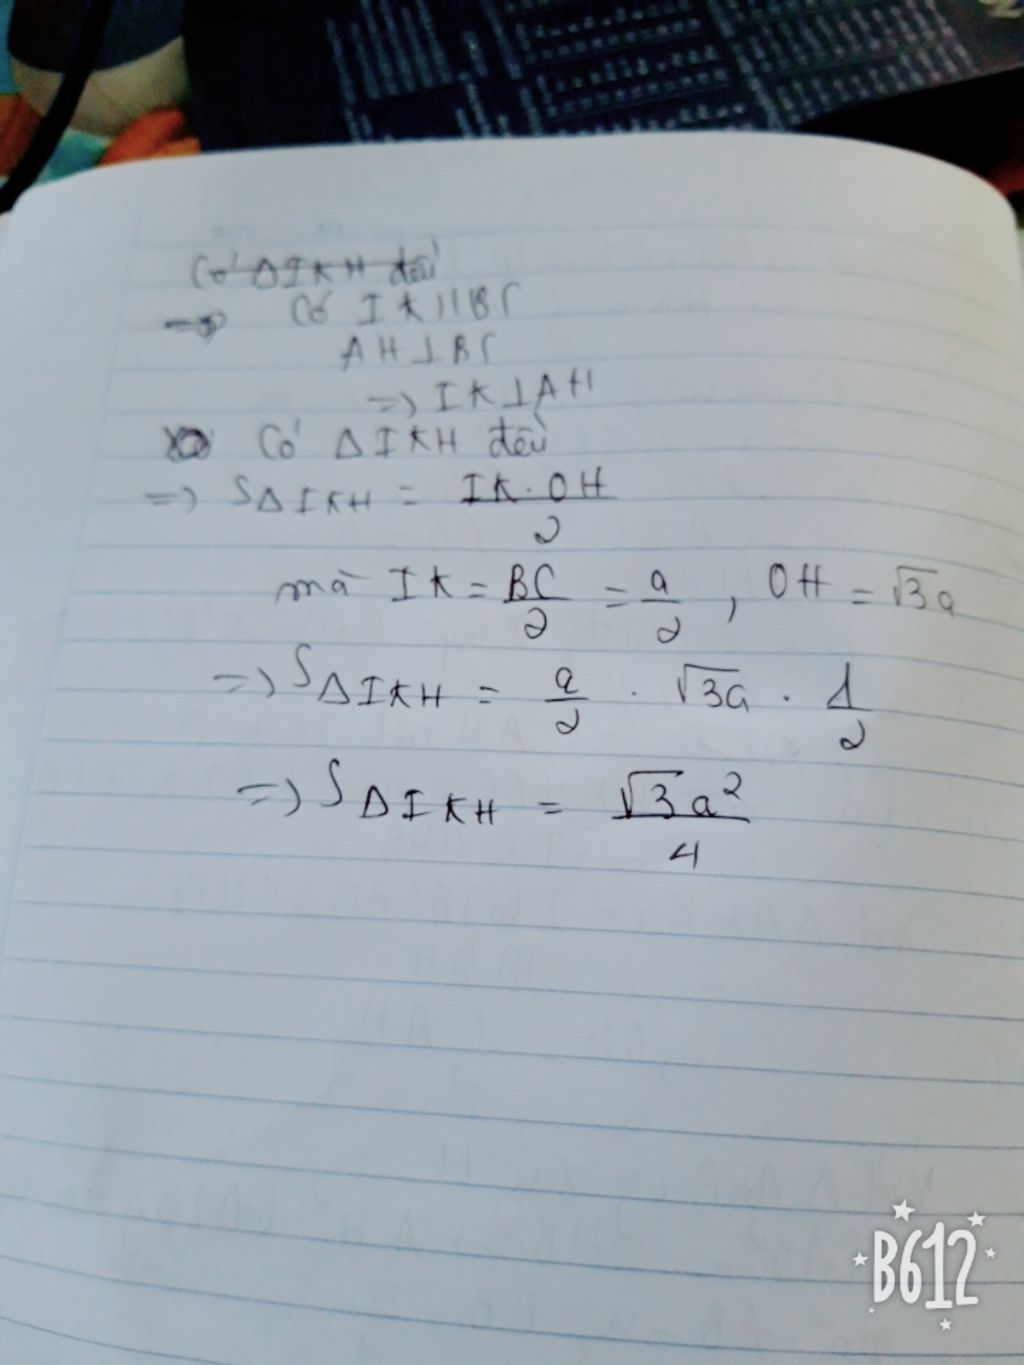 Có ΔIKH đều
=> Có IK//BC
AH⊥BC
=> IK⊥AH
Có ΔIKH đều
=> SΔIKH = IK.OH/2
mà IK = BC/2 = a/2 , OH = √3a
=> SΔIKH = a/2 . √3a . 1/2
=> SΔIKH = √3a²/4
B612